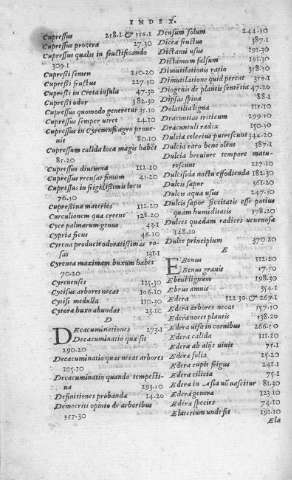 INDEX.
Cupressus 218.1 & 310.1
Cupressus procera 27.30
Cupressus qualis in fructificando
309.1
Cupressi semen 210.20
Cupressi fructus 227.30
Cupressi in Creta insula 47.30
Cupressi odor 382.30
Cupressus quomodo generetur 31.10
Cupressus semper uiret 24.10
80.10
Cupressum calida loca magis habet
81.20
Cupressus diuturna 112.10
Cupressus recusas fimum 41.20
Cupressus in frigidissimis locis
76.10
Cupressina materies 112.10
Curculionem qua ceres 128.20
Cyce palmarum genus 43.1
Cypria ficus 46.10
Cyrena producit odoratissimas ro
sas 131.1
Cyrena maximam buxum habet
70.20
Cyrenensis
Cytisus arbores necat 306.10
Cytisi medulla 110.30
Cytora buxo abundat 23.10
D
Decacuminationes 273.1
Decacuminatio quæ sit
290.20
Decacuminatio quas necat arbores
205.20
Decacuminatio quando tempesti-
na 293.10
Definitiones probanda 14.20
Democriti opinio de arboribus
257.30
Densum solum 244.10
Dicta fructus 387.1
Dictami usus 191.30
Dictamum falsum 191.30
Dimutilationis ratio 378.10
Dimutilatio quid pereat 310.1
Diogenis de plantis sententia 47.20
Dipsas spina 84.1
Dolatilis ligna 111.10
Dracontias triticum 279.10
Dracunculi radix 150.10
Dulcia celerius putrescunt 344.20
Dulcia raro bene olent 387.1
Dulcia breuiore tempore matu-
rescunt 327.10
Dulciscia noctu effodienda 181.30
Dulcis sapor 366.20
Dulcis aqua usus 247.20
Dulcis sapor siccitatis esse potius
quam humiditatis 398.20
Dulces quædam radices uenenosa
347.30
Dulce principium 370.20
E
Ebenus 112.20
Ebenus grauis 17.10
Ebeni lignum 198.30
Ebrius amnis 354.1
Edera 112.30 & 267.1
Edera arbores necat 157.10
Edera noces plantis 138.20
Edera uisa in cornibus 266.50
Edera calida 311.10
Edera ab alijs uiuit 75.1
Edera folia 25.20
Edera cupit frigus 241.1
Edera cilicia 75.1
Edera in Asia nō nascitur 81.30
Edera genera 123.10
Edera species 74.10
Elaterium unde sit 190.10
Ela